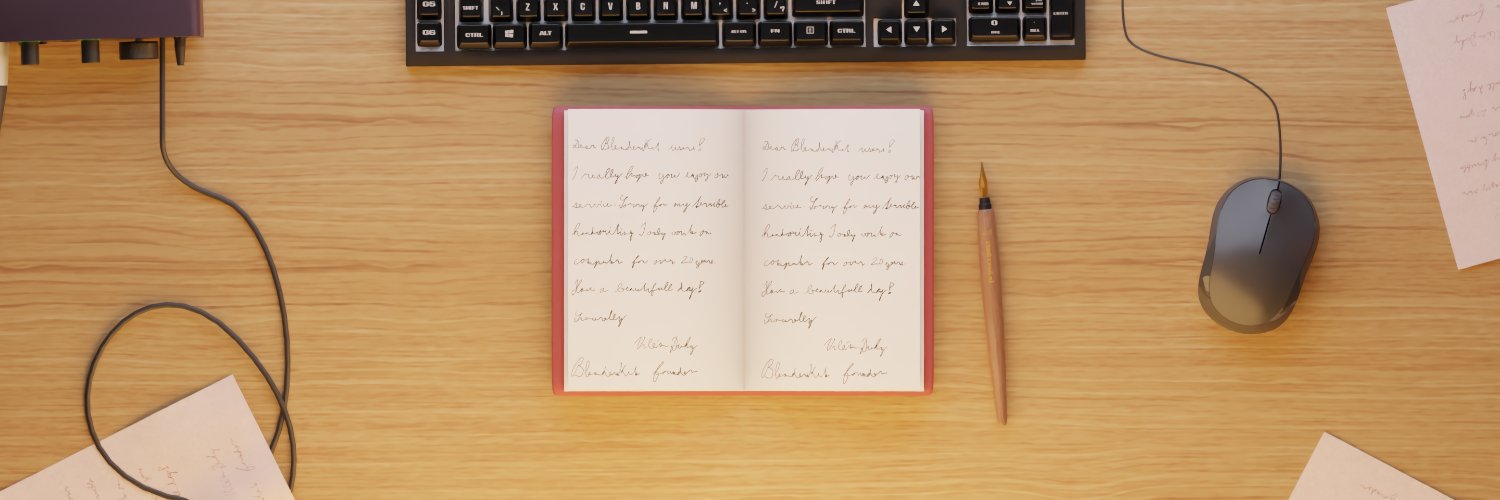 G5
SHIFT Z X C V B N M SHIFT
G6
CTRL ALT FN CTRL
0
Dear BlenderKit users!
I really hope you enjoy our
service. Sorry for my terrible
handwriting I only work on
computer for over 20 years.
Have a beautifull day!
Sincerelly
Vilém Duhy
BlenderKit founder
Dear BlenderKit users!
I really hope you enjoy our
service. Sorry for my terrible
handwriting I only work on
computer for over 20 years.
Have a beautifull day!
Sincerelly
Vilém Duhy
BlenderKit founder